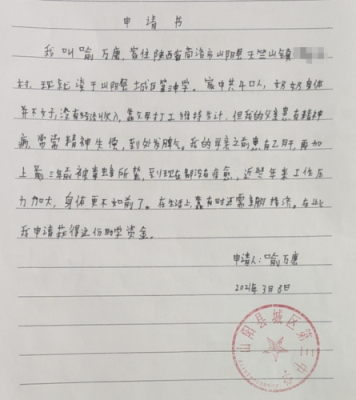 申请书
我叫喻万康,家住陕西省商洛市山阳县天竺山镇
村,现就读于山阳县城区第三中学。家中共有口人,奶奶身体
并不好,没有经济收入,靠父母打工维持生计,但我的父亲患有精神
病,常常精神失常,到处发脾气。我的母亲之前患有乙肝,再加
上前三年前被毒蜂所蜇,到现在都没有痊愈,近些年来工作压
力加大,身体更不如前了。在生活上,靠着亲戚的接济。在此
我申请获得这份助学资金。
申请人:喻万康
2021年3月6日
山阳县城区第三中学